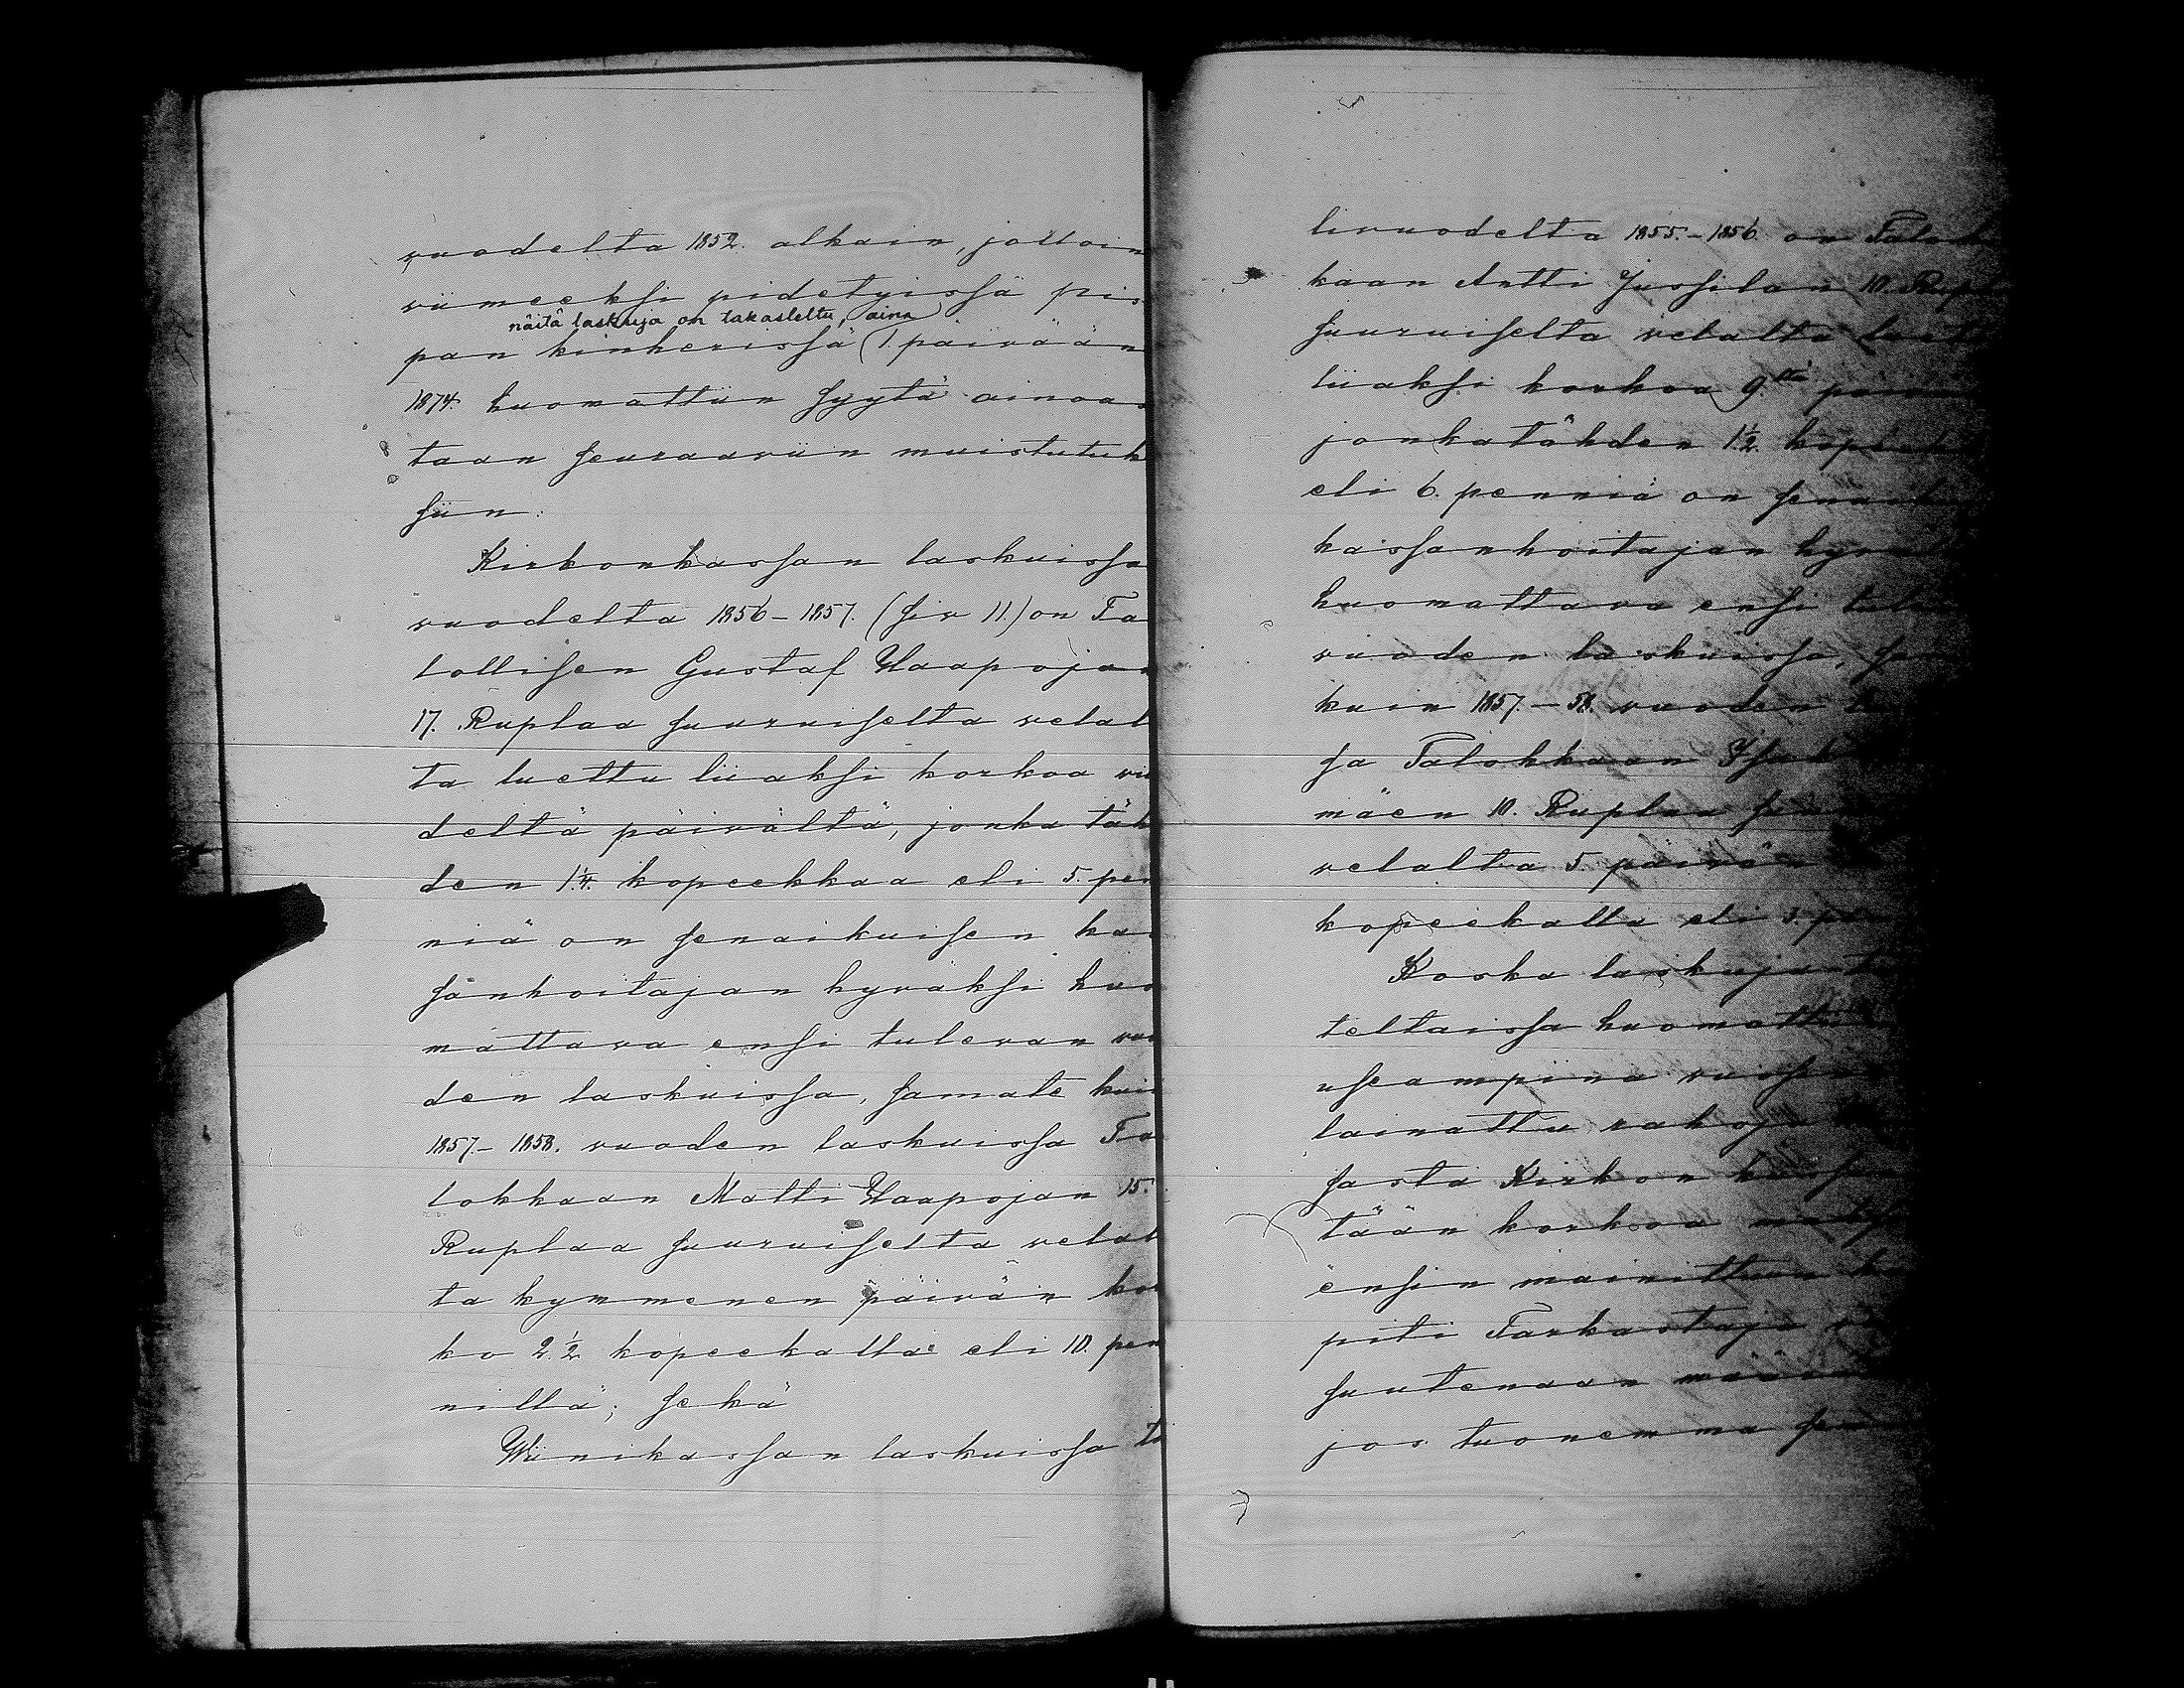 vuodelta 1852. alkain, jolloin
viimeeksi pidetyissä pis
näitä laskuja on takasteltu, aina
pan kinkerissä (1. päivään
1874. huomattiin syytä ainoas
taan seuraaviin muistutuk
siin:
Kirkonkassan laskuissa
vuodelta 1856-1857. (siv 11.) on Ta
lollisen Gustaf Haapojan
17. Ruplaa suuruiselta velal
ta luettu liiaksi korkoa vii
deltä päivältä, jonka täh
den 1¼. kopeekkaa eli 5. pen
niä on senaikuisen kas
sanhoitajan hyväksi huo
mattava ensi tulevan vuo
den laskuissa, samate kuin
1857.- 1858. vuoden laskuissa Ta
lokkaan Matti Haapojan 15.
Ruplaa suuruiselta velal
ta kymmenen päivän kor
ko 2.½ kopeekalla eli 10. pen
nillä; sekä
Viinikassan laskuissa ti
livuodelta 1855.-1856 on Talok
kaan Antti Jussilan 10. Rupl
suuruiselta velalta luet
liiaksi korkoa 9.ltä päiv
jonkatähden 1½. kopeek
eli 6. penniä on senaik
kassanhoitajan hyväk
huomattava ensi tulev
vuoden laskuissa, sam
kuin 1857.-58. vuoden l
sa Talokkaan
mäen 10. Ruplaa suu
velalta 5. päivän
kopeekalla eli 3. pen
Koska laskuja ta
teltaissa huomattiin
useampina vuosina
lainattu rahoja
sasta Kirkon kassa
tään korkoa maks
ensin mainittuun
piti Tarkastaja
suutenaan määrä
jos tuonemma sem